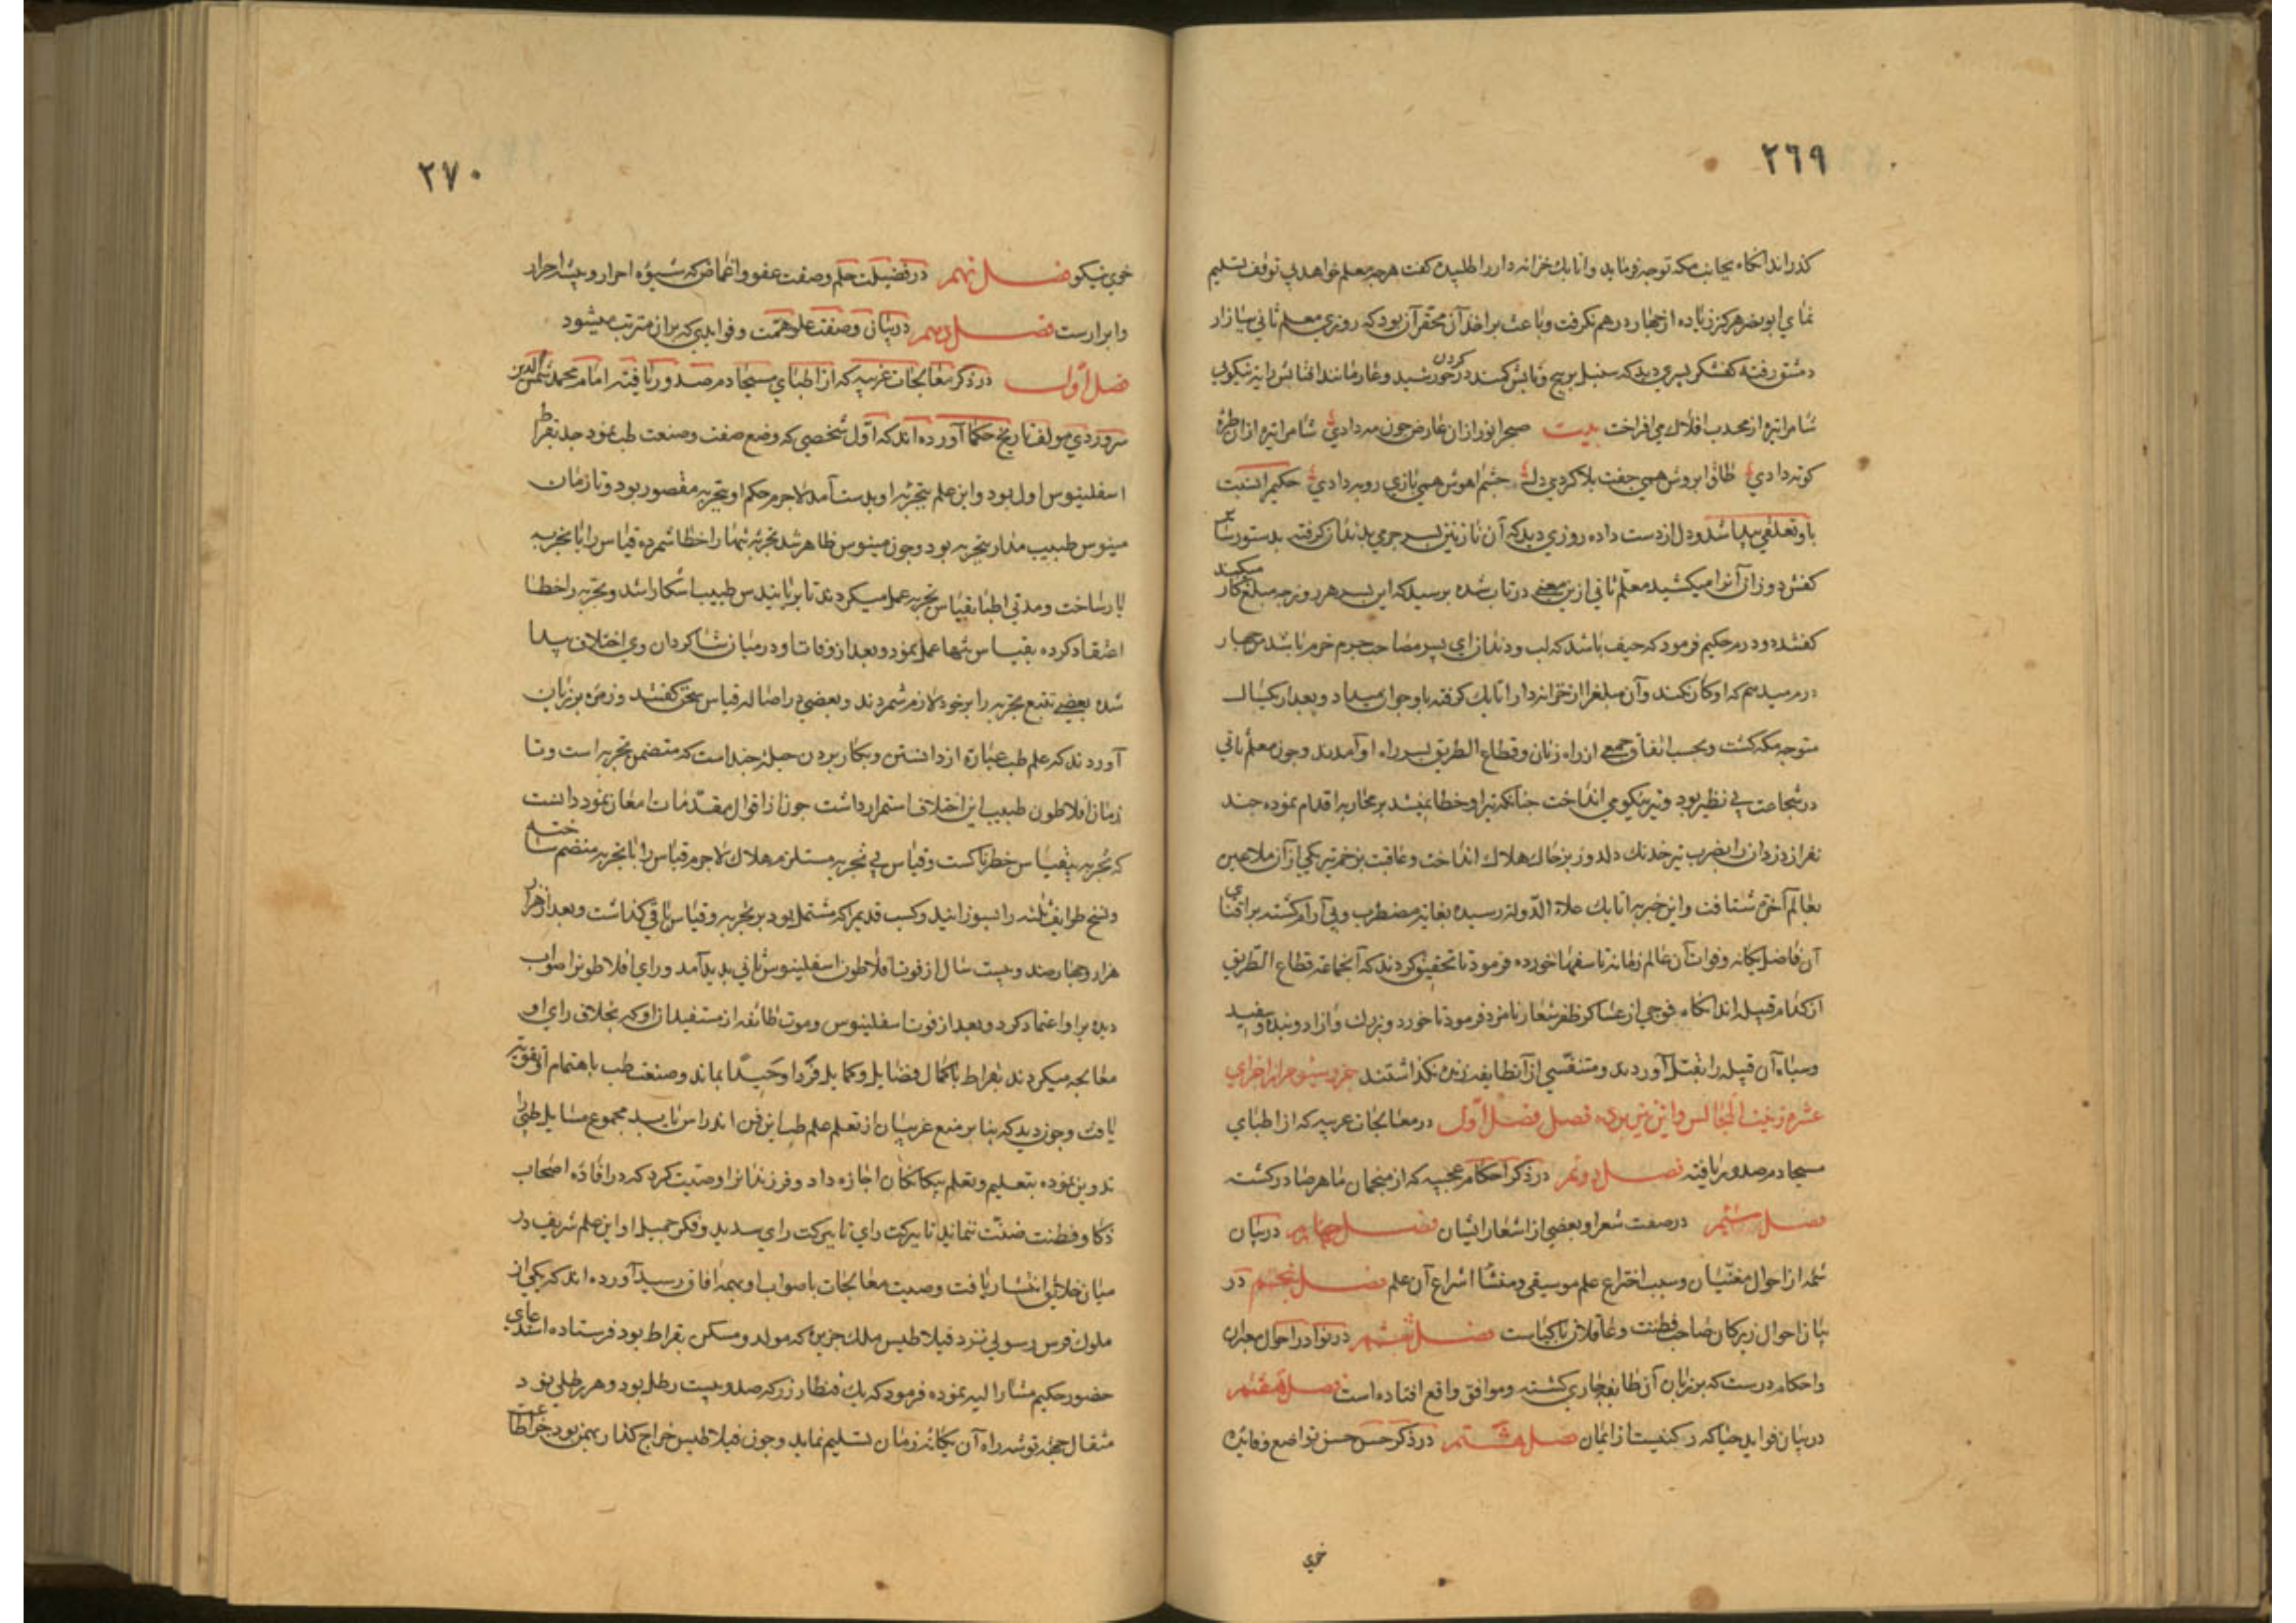 ٢٦٩
گذراند انکاه بجانب مکه توجه نماید و اتابک خزانه دار را طلبیده گفت هرچه معلم خواهد بی توقف تسلیم
نمای ابونصر هرگز زیاده از چهار درهم نکرفت و باعث بر اخذ آن محقر آن بود که روزی معلم ثانی ببازار
دمشق رفته کفشکر پسری دید که سنبل پرپیچ
شامراتیره از محدب افلاک می افراخت بیت صبح انور از آن عارض چون مه دادی شام را تیره از آن طره
کوته دادی طاق ابروش همی جفت بلا کردی دل چشم اهوش همی بازی روبه دادی حکیم را نسبت
باو تعلقی پیدا شد و دل از دست داده روزی دید که آن نازنین پسر چرمی بدندان کرفته بدستور
کفش دوزان آنرا میکشید معلم ثانی ازین معنی در تاب شده پرسید که این پسر هر روز چه مبلغ کار میکند
گفتند دو درم حکیم فرمود که حیف باشد که لب و دندان ای پسر مصاحب چرم خر باشد من چهار
درم میدهم که او کار نکند و آن مبلغ را از خزانه دار اتابک کرفته باو جوان میداد و بعد از یکسال
متوجه مکه کشت و بحسب اتفاق جمعی از راه زنان و قطاع الطریق بسر راه او آمدند و چون معلم ثانی
در شجاعت بی نظیر بود و تیر نیکو می انداخت چنانکه تیر او خطا نمیشد بر محاربه اقدام نموده چند
نفر از دزدان را بضرب تیر خدنک دلدوز بر خاک هلاک انداخت و عاقبت بزخم تیر یکی از آن ملاعین
بعالم آخرت شتافت و این خبر به اتابک علاء الدوله رسیده بغایت مضطرب و بی آرام کشته بر
آن فاضل یکانه و فوات آن عالم زمانه تاسفها خورده فرمود تا تحقیق کردند که آنجماعه قطاع الطریق
از کدام قبیله اند انکاه فوجی از عساکر ظفر شعار نامزد فرمود تا خورد و بزرک و آزاد و بنده و سفید
و سیاه آن قبیله را بقتل آوردند و متنفسی از آن طایفه زنده نکذاشتند جزو سیوم از اجزای
عشره زینت المجالس و این نیز برده فصل فصل اول در معالجات غریبه که از اطبای
مسیحا دم صدور یافته فصل دوم در ذکر احکام عجیبه که از منجمان ماهر صادر کشته
فصل سیم در صفت شعرا و بعضی از اشعار ایشان فصل چهارم در بیان
شمه از احوال مغنیان و سبب اختراع علم موسیقی و منشا اشراع آن علم فصل پنجم در
بیان احوال زیرکان صاحب فطنت و عاقلان با کیاست فصل ششم در نوادر احوال معبران
و احکام درست که بر زبان آن طایفه جاری کشته و موافق واقع افتاده است فصل هفتم
در بیان فواید حیا که رکنیست از ایمان فصل هشتم در ذکر حسن تواضع و فایده
خوی
٢٧٠
خوی نیکو فصل نهم در فضیلت حلم و صفت عفو و اغماض که شیوه احرار و پیشه احرار
و ابرارست فصل دهم در بیان و صفت علو همت و فوایدی که بر آن مترتب میشود
فصل اول در ذکر معالجات غریبه که از اطبای مسیحا دم صدور یافته امام محمد شمس الدین
سروردی مولف تاریخ حکما آورده اند که اول شخصی که وضع صفت و صنعت طب نمود جد بقراط
اسقلینوس اول بود و این علم بتجربه او بدست آمد لاجرم حکم او بتجربه مقصور بود و تا زمان
مینوس طبیب مدار بتجربه بود و چون مینوس ظاهر شد تجربه تنها را خطا شمرده قیاس را با تجربه
یار ساخت و مدتی اطبا بقیاس تجربه عمل میکردند تا برمانیدس طبیب آشکارا شد و تجربه را خطا
اعتقاد کرده بقیاس تنها عمل نمود و بعد از وفات او در میان شاکردان وی اختلاف پیدا
شده بعضی تتبع تجربه را بر خود لازم شمردند و بعضی در اصاله قیاس سخن گفتند و زمره بر زبان
آوردند که علم طب عبارة از دانستن و بکار بردن حیلهٔ چند است که متضمن تجربه است و تا
زمان افلاطون طبیب این اختلاف استمرار داشت چون از اقوال مقدمات امعان نمود دانست
که تجربه بیقیاس خطرناکست و قیاس بی تجربه مستلزم هلاک لاجرم قیاس را با تجربه منضم ساخته
و نسخ طوایف ثلثه را بسوزانید و کتب قدیم را که مشتمل بود بر تجربه و قیاس باقی کذاشت و بعد از
هزار و چهارصد و بیست سال از فوت افلاطون اسقلینوس ثانی پدید آمد و رای افلاطونرا صواب
دیده بر او اعتماد کرد و بعد از فوت اسقلینوس و موت طائفه از مستفیدان او که بخلاف رای او
معالجه میکردند بقراط با کمال فضایل و کمایل فردا وحیدا بماند و صنعت طب باهتمام او تقویت
یافت و چون دید که بنابر منع غریبان از تعلم علم طب این فن اندراس یابد مجموع مسایل طبی را
تدوین نموده بتعلیم و تعلم بیکانکان اجازه داد و فرزندانرا وصیت کرد که در افاده اصحاب
ذکا و فطنت ضنت ننمایند تا ببرکت رای سدید و فکر جمیل او این علم شریف در
میان خلایق انتشار یافت وصیت معالجات باصواب او بهمه آفاق رسید آورده اند که یکی از
ملوک فرس رسولی نزد فیلاطیس ملک جزیره که مولد و مسکن بقراط بود فرستاده استدعای
حضور حکیم مشار الیه نموده فرمود که یک قنطار زر که صد و بیست رطل بود و هر رطلی نود
مثقال جهة توشه راه آن یکانه زمان تسلیم نماید و چون فیلاطیس خراج کذار بهمن بود